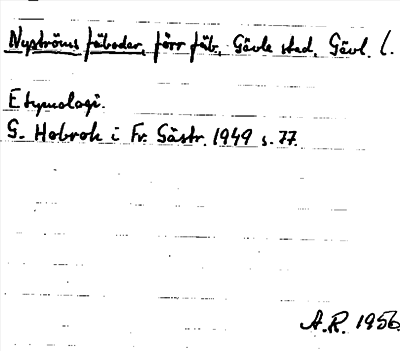 Nyströms fäbodar, förr fäb., Gävle stad, Gävl. l.
Etymologi.
G. Hobroh i Fr. Gästr. 1949 s. 77.
A.R. 1956.